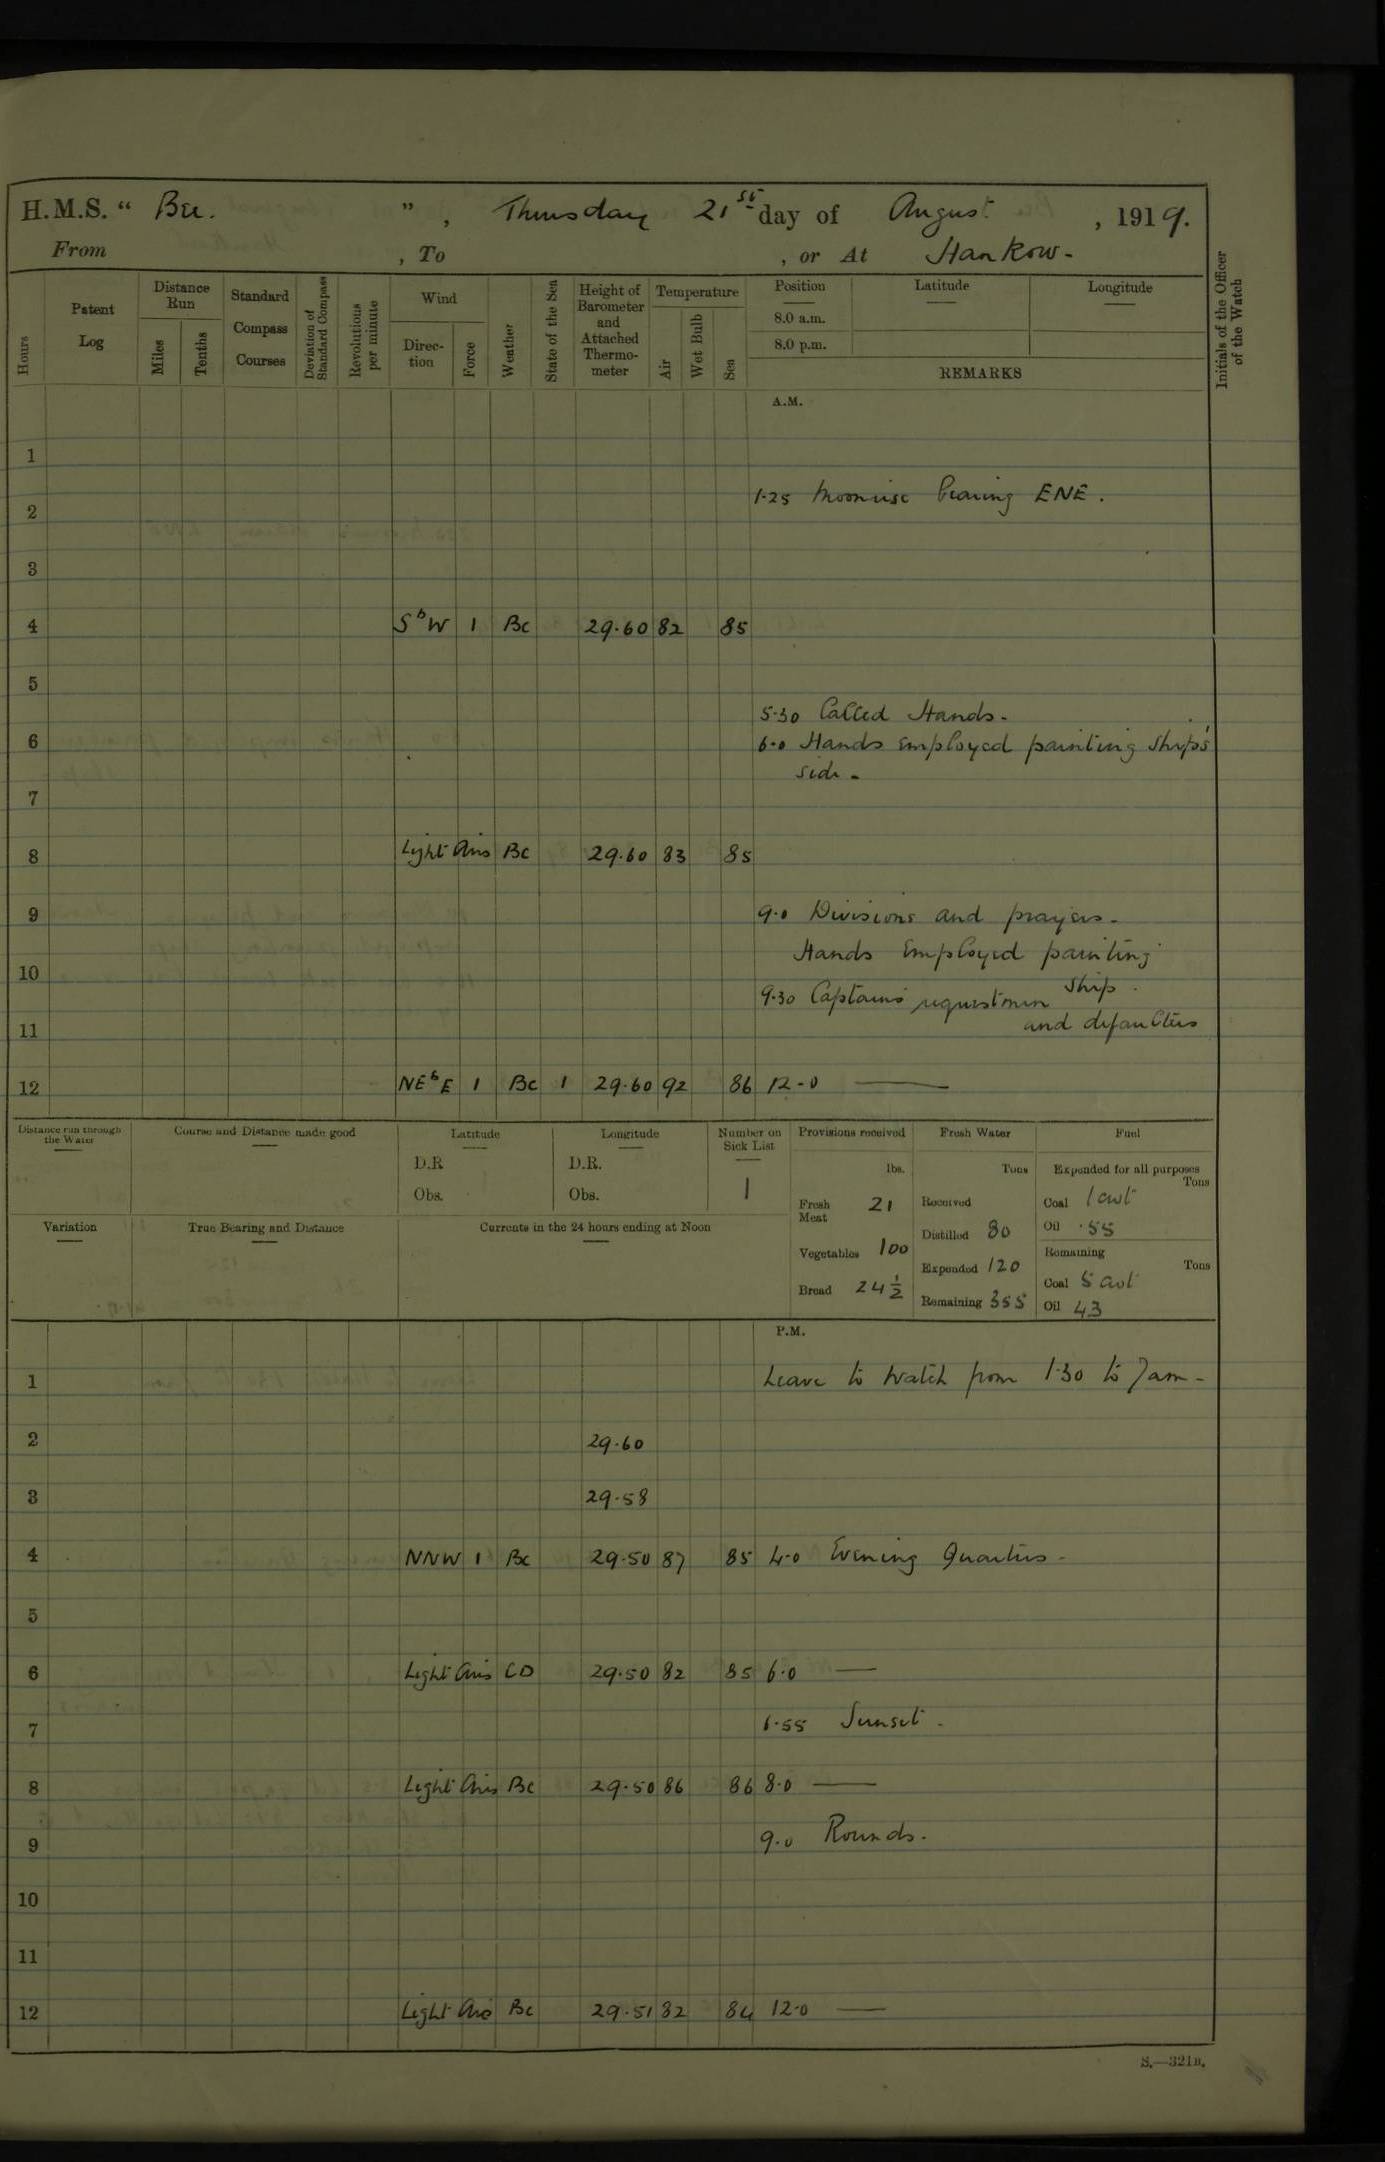 H.M.S. " Bee. ", Thursday 21st day of August, 1919.
From , To , or At Hankow.
Initials of the Officer of the Watch
Hours
Patent Log
Distance Run
Miles
Tenths
Standard Compass Courses
Deviation of Standard Compass
Revolutions per minute
Wind
Direc-tion
Force
Weather
State of the Sea
Height of Barometer and Attached Thermo-meter
Temperature
Air
Wet Bulb
Sea
Position
Latitude
Longitude
8.0 a.m.
8.0 p.m.
REMARKS
A.M.
1
1.25 Moonrise bearing ENE.
2
3
4 SbW 1 Bc 29.60 82 85
5
5.30 Called Hands.
6 6.0 Hands employed painting ship's
side.
7
8 Light Airs Bc 29.60 83 85
9 9.0 Divisions and prayers.
Hands employed painting
10 ship.
9.30 Captains requestmen
11 and defaulters
12 NEbE 1 Bc 1 29.60 92 86 12.0 —
Distance run through the Water
Course and Distance made good
Latitude
D.R
Obs.
Longitude
D.R.
Obs.
Number on Sick List
1
Provisions received
lbs.
Fresh Meat 21
Vegetables 100
Bread 24 1/2
Fresh Water
Tons
Received
Distilled 80
Expended 120
Remaining 355
Fuel
Expended for all purposes
Tons
Coal 1 cwt
Oil .55
Remaining
Tons
Coal 5 cwt
Oil 43
Variation
True Bearing and Distance
Currents in the 24 hours ending at Noon
P.M.
1 Leave to Watch from 1.30 to 7 am.
2 29.60
3 29.58
4 NNW 1 Bc 29.50 87 85 4.0 Evening Quarters.
5
6 Light Airs CD 29.50 82 85 6.0 —
7 6.55 Sunset.
8 Light Airs Bc 29.50 86 86 8.0 —
9 9.0 Rounds.
10
11
12 Light Airs Bc 29.51 82 84 12.0 —
S.—321B.